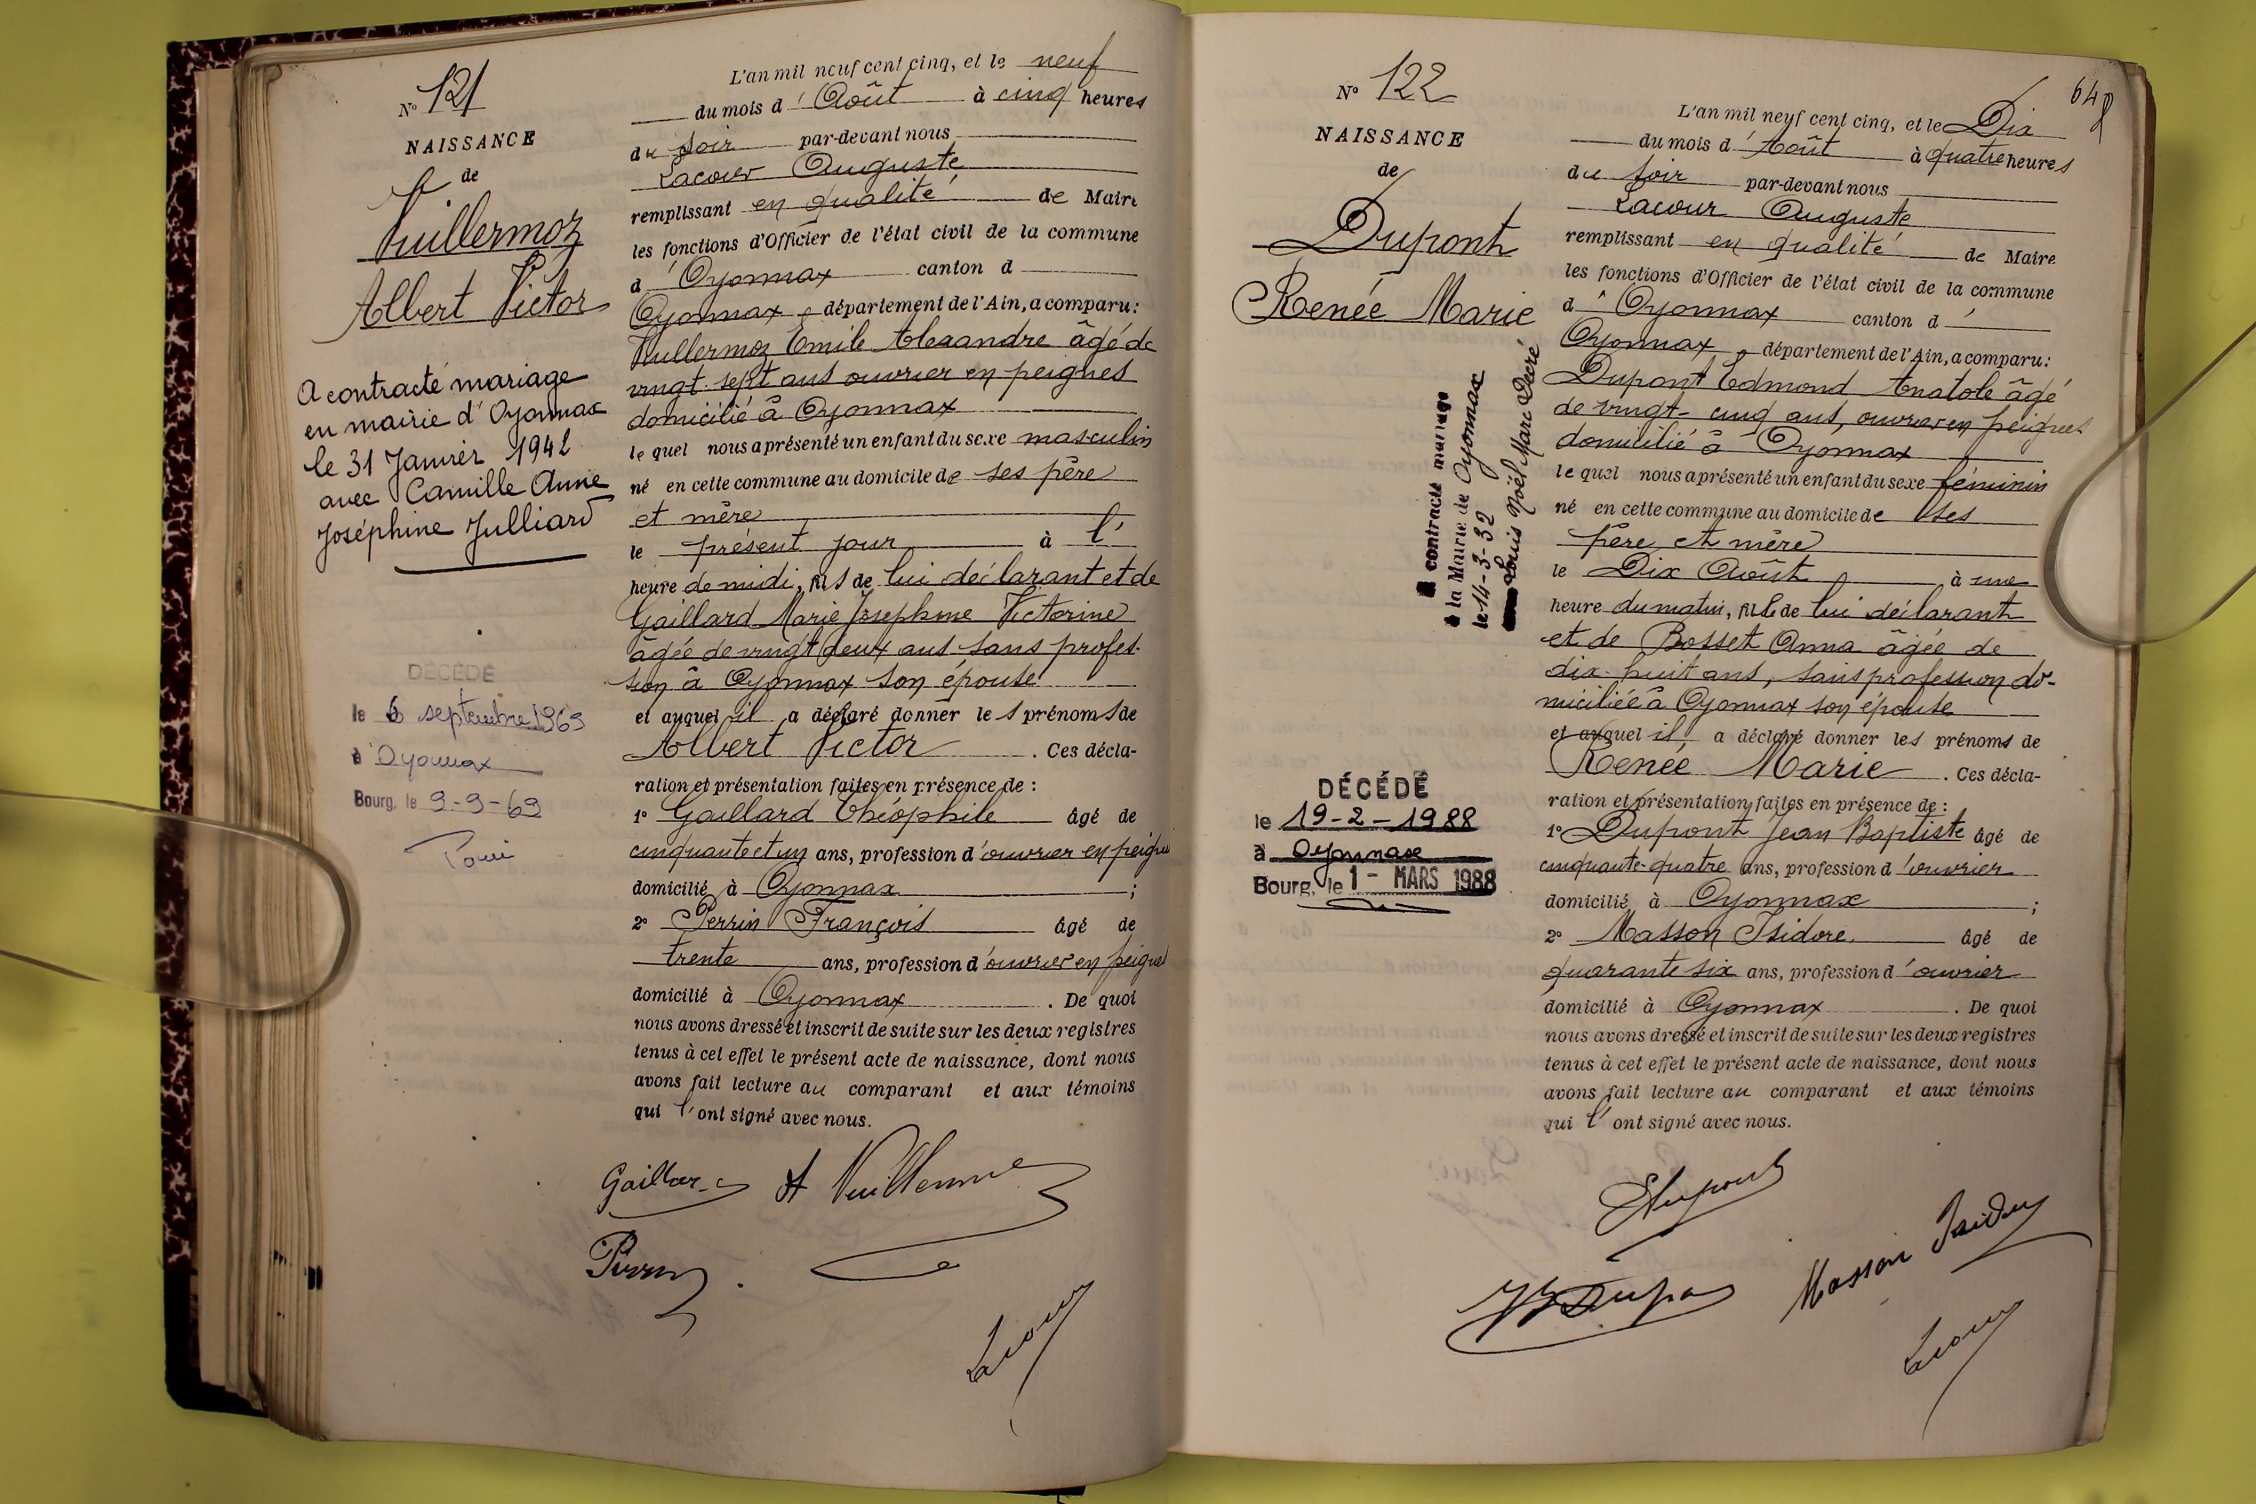 N° 121
NAISSANCE
de
Vuillermoz
Albert Victor
A contracté mariage
en mairie d'Oyonnax
le 31 Janvier 1942
avec Camille Anne
Joséphine Julliard
DÉCÉDÉ
le 6 septembre 1969
à Oyonnax
Bourg, le 9-9-69
L'an mil neuf cent cinq, et le neuf
du mois d'Août à cinq heures
du soir par-devant nous
Lacour Auguste
remplissant en qualité de Maire
les fonctions d'Officier de l'état civil de la commune
d'Oyonnax canton d
Oyonnax, département de l'Ain, a comparu:
Vuillermoz Emile Alexandre âgé de
vingt-sept ans ouvrier en peignes
domicilié à Oyonnax
lequel nous a présenté un enfant du sexe masculin
né en cette commune au domicile de ses père
et mère
le présent jour à l'
heure de midi, fils de lui déclarant et de
Gaillard Marie Josephine Victorine
âgée de vingt deux ans sans profes-
sion à Oyonnax son épouse
et auquel il a déclaré donner les prénoms de
Albert Victor. Ces décla-
ration et présentation faites en présence de :
1° Gaillard Théophile âgé de
cinquante et un ans, profession d'ouvrier en peignes
domicilié à Oyonnax ;
2° Perrin François âgé de
trente ans, profession d'ouvrier en peignes
domicilié à Oyonnax. De quoi
nous avons dressé et inscrit de suite sur les deux registres
tenus à cet effet le présent acte de naissance, dont nous
avons fait lecture au comparant et aux témoins
qui l'ont signé avec nous.
Gaillard A Vuillerme
Perrin
Lacour
648
N° 122
NAISSANCE
de
Dupont
Renée Marie
A contracté mariage
à la Mairie de Oyonnax
le 14-3-32
Louis Noël Marc Decré
DÉCÉDÉ
le 19-2-1988
à Oyonnax
Bourg, le 1- MARS 1988
L'an mil neuf cent cinq, et le Dix
du mois d'Août à quatre heures
du soir par-devant nous
Lacour Auguste
remplissant en qualité de Maire
les fonctions d'Officier de l'état civil de la commune
d'Oyonnax canton d'
Oyonnax, département de l'Ain, a comparu:
Dupont Edmond Anatole âgé
de vingt-cinq ans, ouvrier en peignes
domicilié à Oyonnax
lequel nous a présenté un enfant du sexe féminin
né en cette commune au domicile de ses
père et mère
le Dix Août à une
heure du matin, fille de lui déclarant
et de Bosset Anna âgée de
dix-huit ans, sans profession do-
miciliée à Oyonnax son épouse
et auquel il a déclaré donner les prénoms de
Renée Marie. Ces décla-
ration et présentation faites en présence de :
1° Dupont Jean Baptiste âgé de
cinquante-quatre ans, profession d'ouvrier
domicilié à Oyonnax ;
2° Masson Isidore âgé de
quarante six ans, profession d'ouvrier
domicilié à Oyonnax. De quoi
nous avons dressé et inscrit de suite sur les deux registres
tenus à cet effet le présent acte de naissance, dont nous
avons fait lecture au comparant et aux témoins
qui l'ont signé avec nous.
EDupont
JB Dupon
Masson Isidore
Lacour